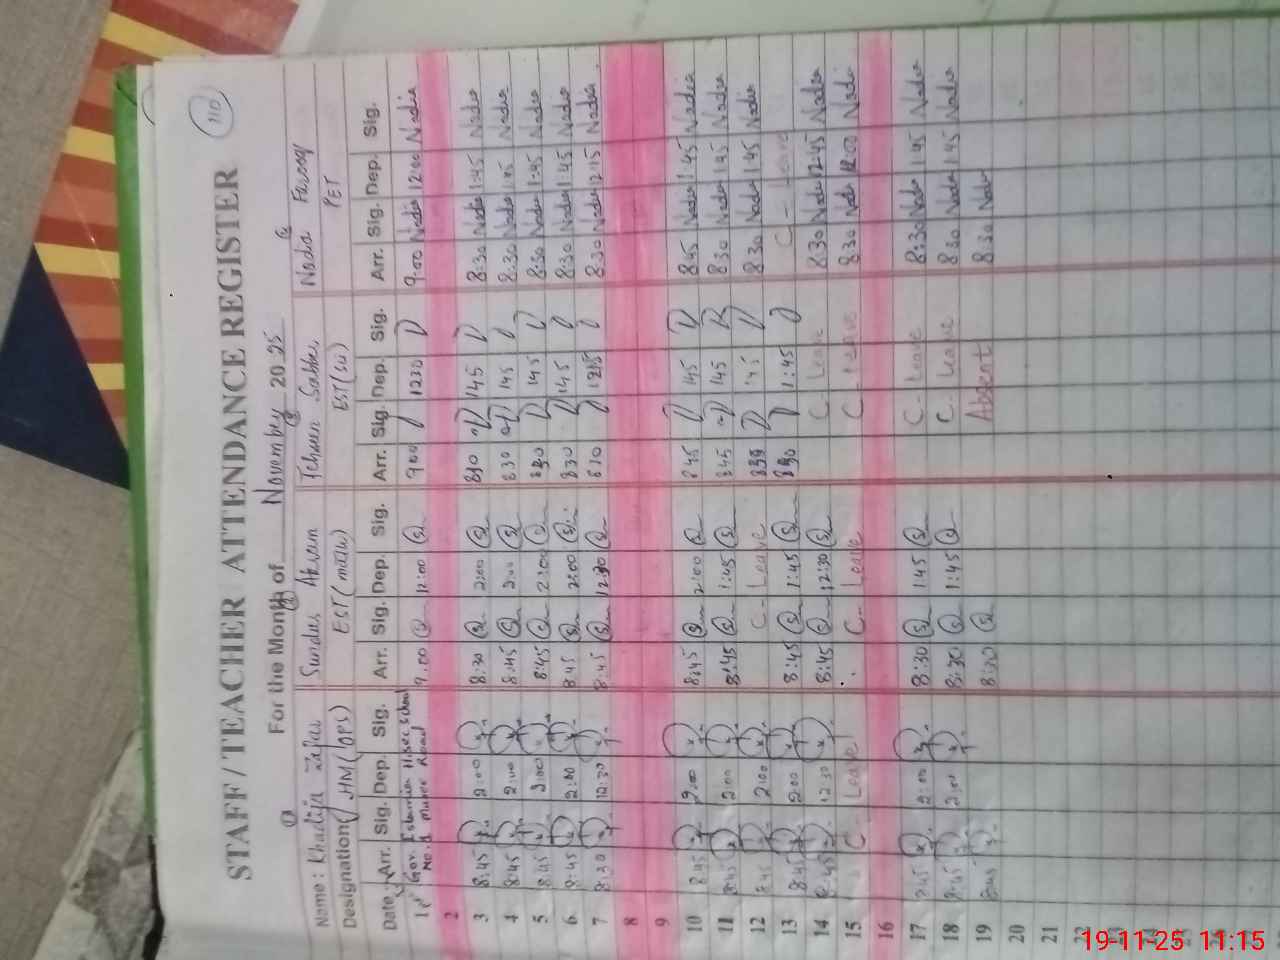 110
STAFF / TEACHER ATTENDANCE REGISTER
For the Month of November 20 25
Name: Khadija Zafar Sundus Akram Tehseen Sabber Nadia Farooq
Designation HM (OPS) EST (Math) EST (SU) PET
Date Arr. Sig. Dep. Sig. Arr. Sig. Dep. Sig. Arr. Sig. Dep. Sig. Arr. Sig. Dep. Sig.
1 Gov. Islamia H.sec School No. 1 Road 9:00 12:00 900 1230 9:00 Nadia 12:00 Nadia
2
3 8:45 2:00 8:30 2:00 830 145 8:30 Nadia 1:45 Nadia
4 8:45 2:00 8:45 2:00 830 145 8:30 Nadia 1:45 Nadia
5 8:45 2:00 8:45 2:00 830 145 8:30 Nadia 1:45 Nadia
6 8:45 2:00 8:45 2:00 830 145 8:30 Nadia 1:45 Nadia
7 8:30 12:30 8:45 12:30 830 1215 8:30 Nadia 12:15 Nadia
8
9
10 8:45 2:00 8:45 2:00 845 145 8:45 Nadia 1:45 Nadia
11 8:45 2:00 8:45 1:45 845 145 8:30 Nadia 1:45 Nadia
12 8:45 2:00 C - Leave 830 145 8:30 Nadia 1:45 Nadia
13 8:45 2:00 8:45 1:45 830 1:45 C - Leave
14 8:45 12:30 8:45 12:30 C - Leave 8:30 Nadia 12:45 Nadia
15 C - Leave C - Leave C - Leave 8:30 Nadia 12:00 Nadia
16
17 8:45 2:00 8:30 1:45 C - Leave 8:30 Nadia 1:45 Nadia
18 8:45 2:00 8:30 1:45 C - Leave 8:30 Nadia 1:45 Nadia
19 8:45 8:30 Absent 8:30 Nadia
20
21
22
23
24
25
26
27
19-11-25 11:15